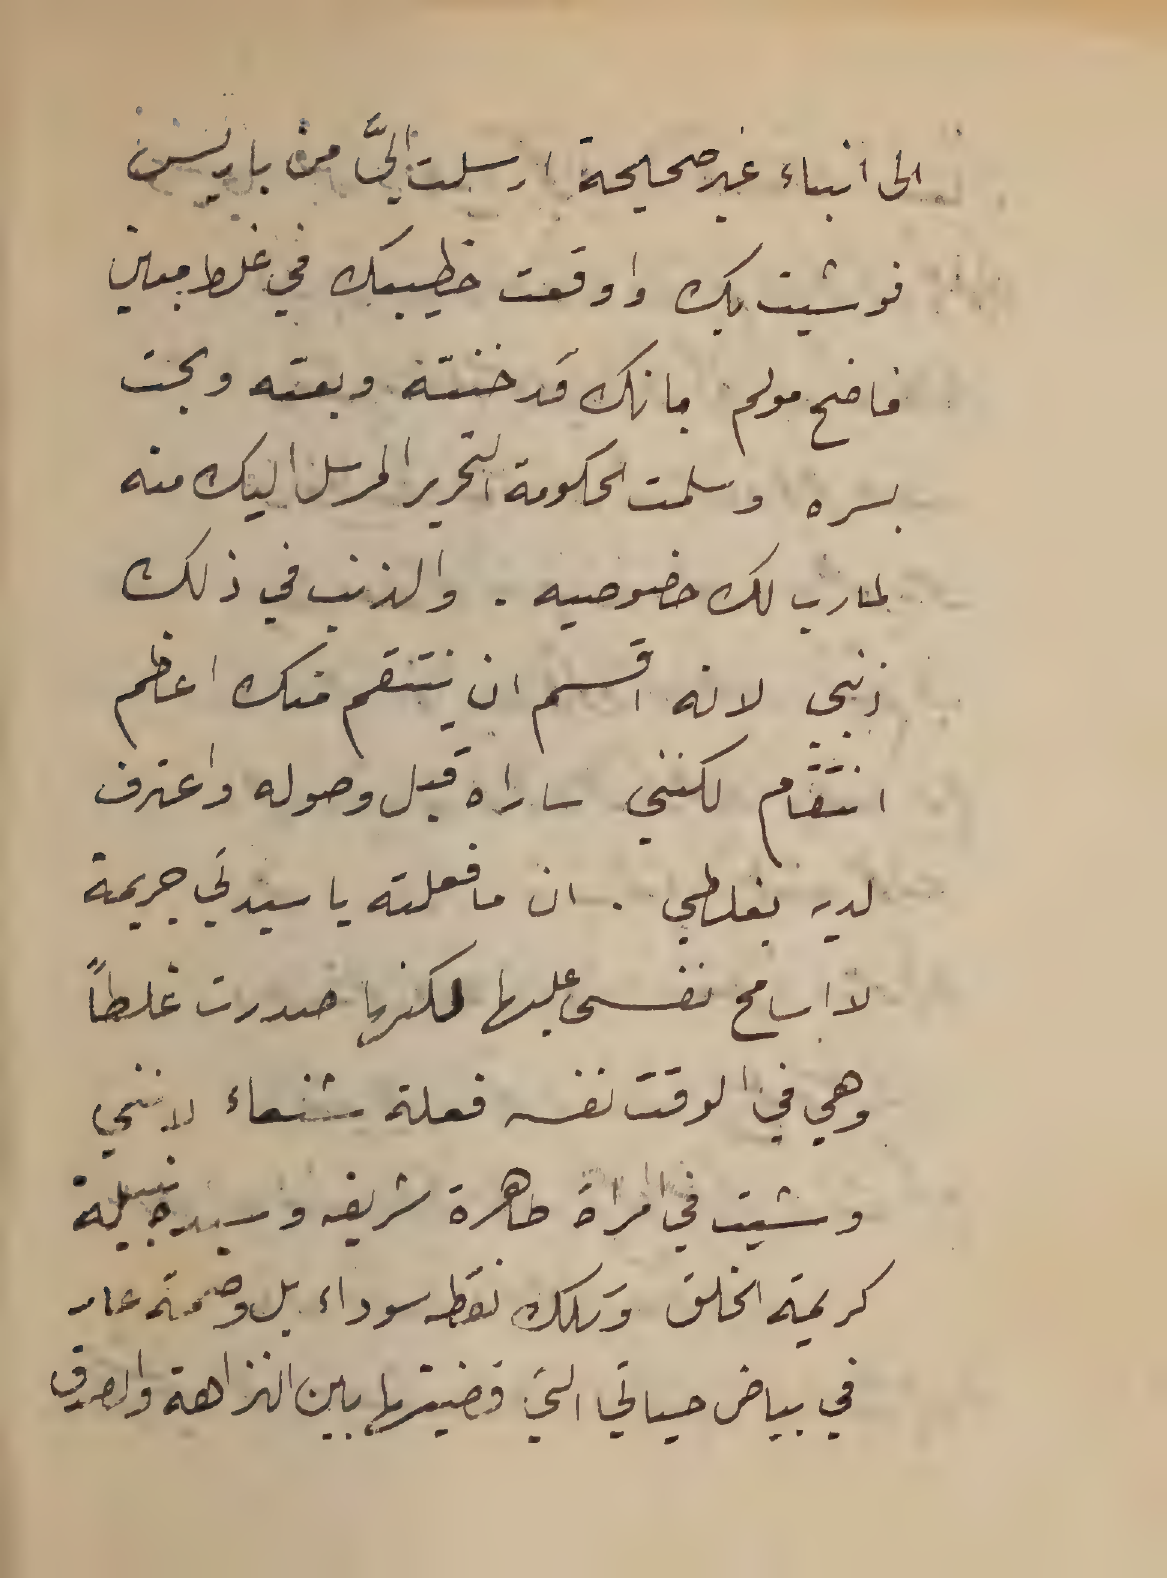 الى انباء غير صحيحة ارسلت اليَّ من باريس
فوشيت بك واوقعت خطيبك في غلط معين
فاضح مولم بانك قد خنته وبعته وبحت
بسره وسلمت الحكومة التحرير المرسل اليك منه
لمارب لك خصوصيه . والذنب في ذلك
ذنبي لانه اقسم ان ينتقم منك اعظم
انتقام لكنني ساراه قبل وصوله واعترف
لديه بغلطي . ان ما فعلته يا سيدتي جريمة
لا اسامح نفسي عليها لكنها صدرت غلطاً
وهي في الوقت نفسه فعلة شنعاء لانني
وشيت في امراة طاهرة شريفه وسيدة نبيلة
كريمة الخلق وتلك نقطه سوداء بل وصمة عار
في بياض حياتي التي قضيتها بين النزاهة والصدق